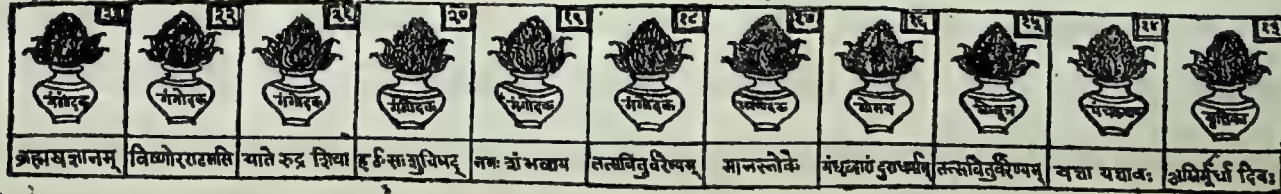 २३ २२ २१ २० १९ १८ १७ १६ १५ १४ १३
गंगोदक गंगोदक गंगोदक गंगोदक गंगोदक गंगोदक गोमय गोमूत्र मृत्तिका
ब्रह्मयज्ञानम् विष्णोरराटमसि यातेरुद्र शिवा हर्ठसःशुचिषद् नमः शंभवाय तत्सवितुर्वरेण्यम् मानस्तोके गंधद्वारां दुराधर्षाम् तत्सवितुर्वरेण्यम् यज्ञा यज्ञावः अग्निर्मूर्धा दिवः